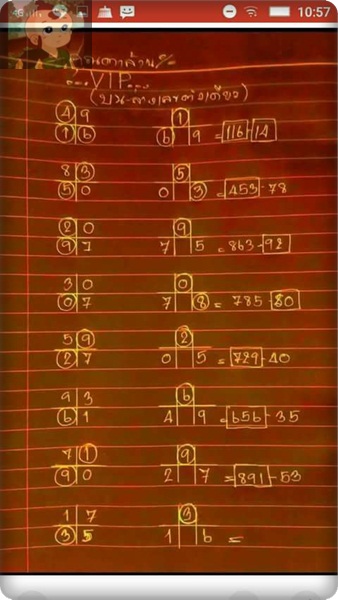 10:57
VIP
(บน-ล่างเลขตัวเดียว)
4 9 1
1 6 6 9 = 116-14
8 3 5
5 0 0 3 = 453-78
2 0 9
9 7 7 5 = 863-92
3 0 0
0 7 7 8 = 785-80
5 9 2
2 7 0 5 = 729-40
9 3 6
6 1 4 9 = 656-35
7 1 9
9 0 2 7 = 891-53
1 7 3
3 5 1 6 =